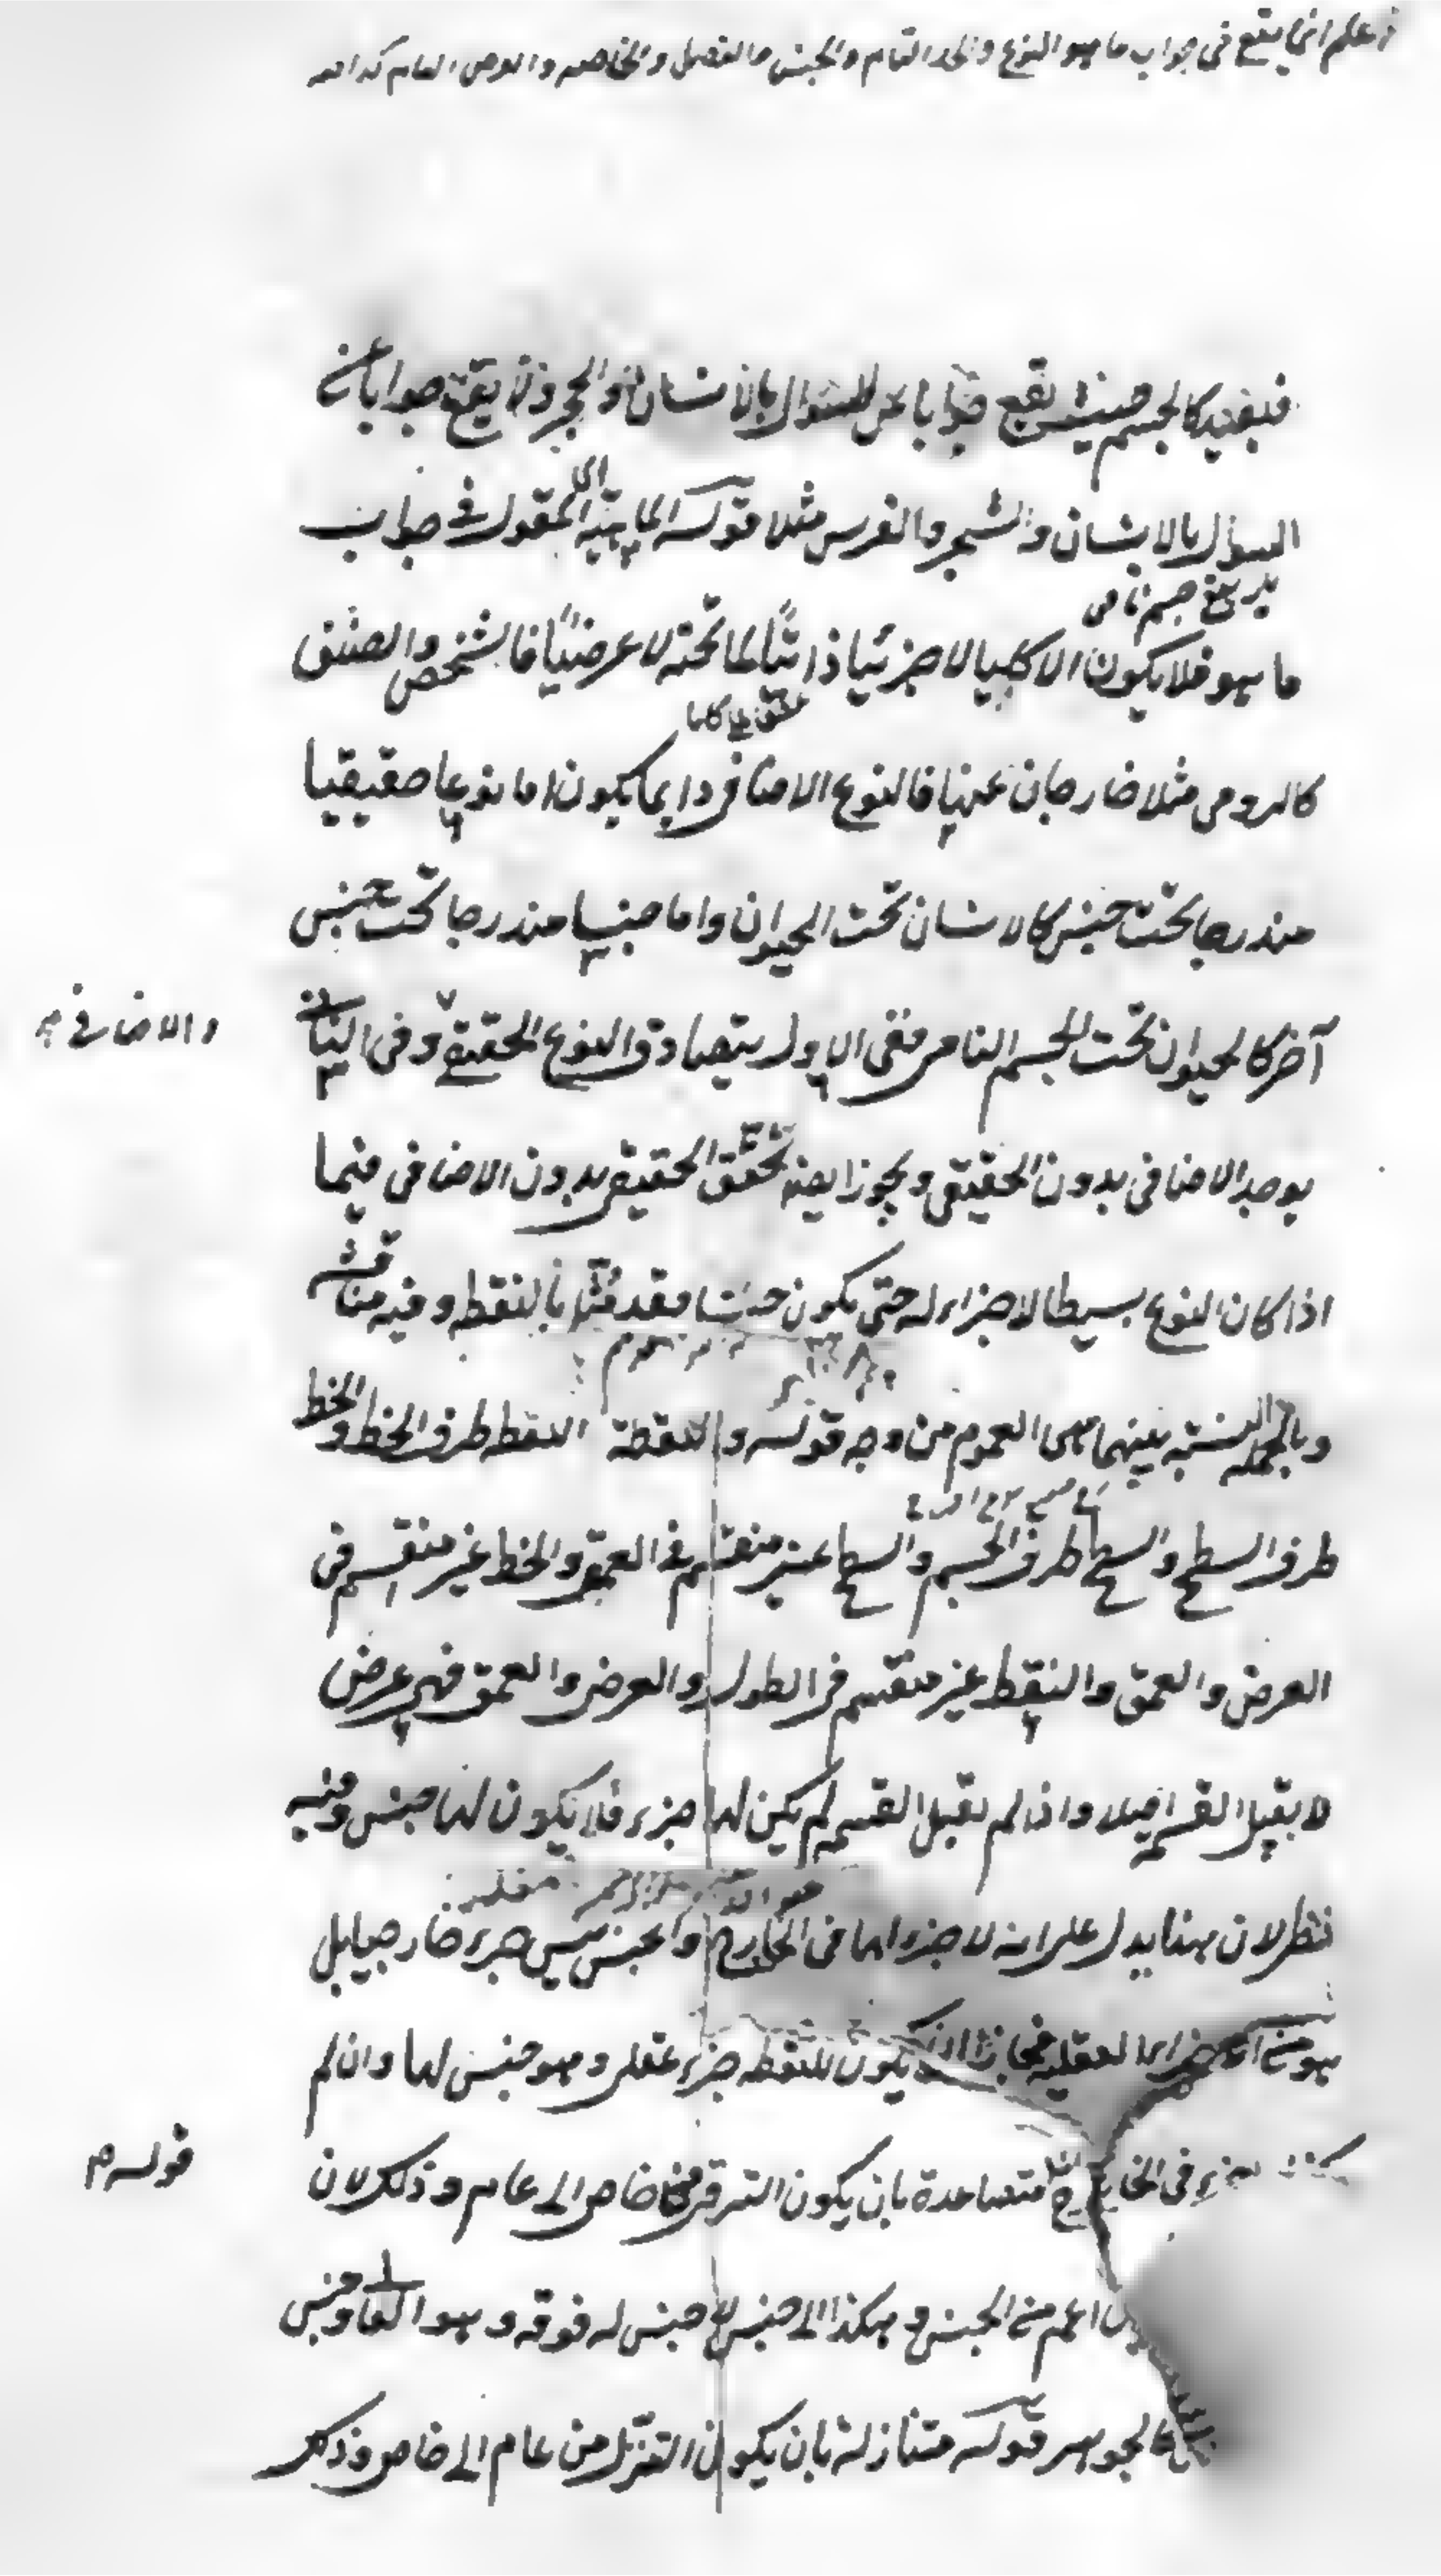 اعلم ان ما يقع في جواب ما هو النوع والحد التام والجنس والفصل والخاصه والعرض العام
فبعيد كالجسم حيث يقع جوابا عن السؤال بالانسان والحجر ولا يقع جوابا عن
السؤال بالانسان والشجر والفرس مثلا قوله الماهية المقول في جواب
جسم نامى
ما هو فلا يكون الا كليا لا جزئيا ذاتيا لما تحته لا عرضيا فالشخص والصنف
كالرومى مثلا خارجان عنها فالنوع الاضافى دايما يكون اما نوعا حقيقيا
مندرجا تحت جنس كالانسان تحت الحيوان واما جنسا مندرجا تحت جنس
آخر كالحيوان تحت الجسم النامى ففى الاول يتصادق النوع الحقيقى وفى الثانى
والاضافى
يوجد الاضافى بدون الحقيقى ويجوز ايضا تحقق الحقيقى بدون الاضافى فيما
اذا كان النوع بسيطا لا جزء له حتى يكون جنسا وقد مثل بالنقطه وفيه مناقشه
وبالجمله النسبة بينهما هى العموم من وجه قوله والنقطة النقطه طرف الخط والخط
طرف السطح والسطح طرف الجسم والسطح غير منقسم فى العمق والخط غير منقسم فى
العرض والعمق والنقطه غير منقسم فى الطول والعرض والعمق فهى عرض
لا يقبل القسمة اصلا واذا لم تقبل القسمه لم يكن لها جزء فلا يكون لها جنس وفيه
نظر لان هذا يدل على انه لا جزء لها فى الخارج والجنس ليس جزء خارجيا بل
هو من الاجزاء العقليه فجاز ان يكون للنقطه جزء عقلى وهو جنس لها وان لم
جزء فى الخارج متصاعدة بان يكون الترقى من خاص الى عام وذلك لان
قوله
اعم من الجنس وهكذا الى جنس لا جنس له فوقه وهو العالى وجنس
كالجوهر قوله متنازلة بان يكون التنزل من عام الى خاص وذلك